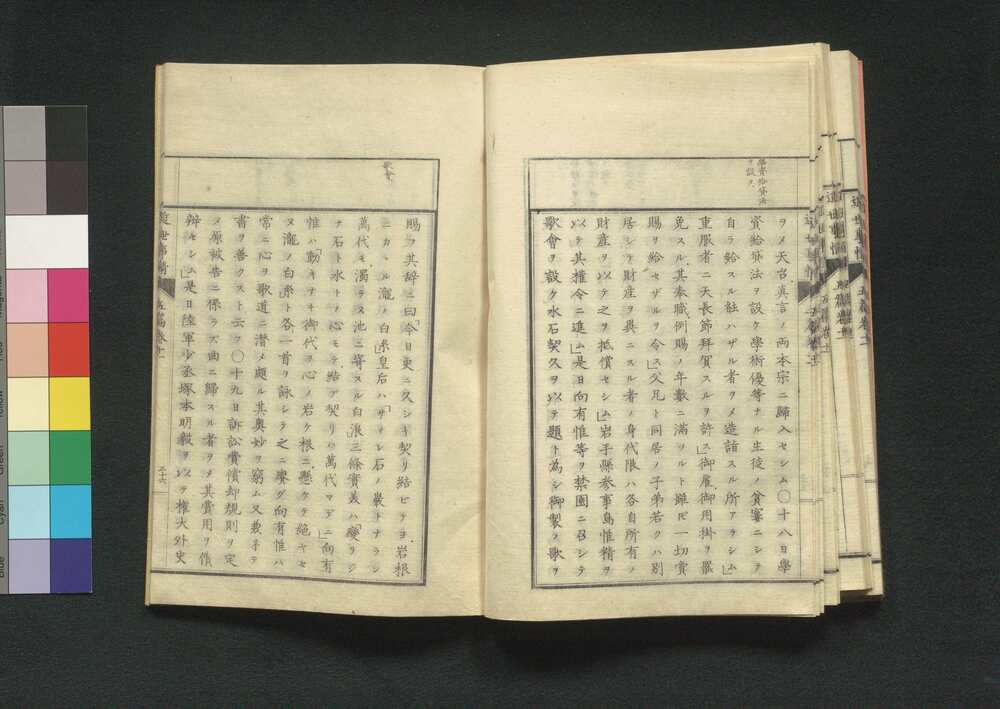 學資給貸法
ヲ設ク
ヲメ天台真言ノ両本宗ニ歸入セシム〇十八日學
資給貸法ヲ設ケ學術優等ナル生徒ノ貧窶ニシテ
自ラ給スル能ハザル者ヲメ造詣スル所アラシム」
重服者ニ天長節拜賀スルヲ許ス」御雇御用掛ヲ罷
免スル其奉職例賜ノ年數ニ滿ツルト雖𪜈一切賞
賜ヲ給セザルヲ令ス」父兄ト同居ノ子弟若クハ別
居シテ財産ヲ異ニスル者ノ身代限ハ各自所有ノ
財産ヲ以テ之ヲ抵償セシム」岩手縣参事島惟精ヲ
以テ其権令ニ進ム」是日向有惟等ヲ禁園ニ召シテ
歌會ヲ設ク水石契久ヲ以テ題ト為シ御製ノ歌ヲ
歌會
賜フ其辞ニ曰「今日更ニ久シキ契リ結ビテヨ岩根
ニカヽル瀧ノ白糸」皇后ハ「サヾレ石ノ巌トナラン
萬代モ濁ラヌ池ニ寄スル白浪」三條實美ハ「變リシ
ナ石ト水トノ心モテ結ブ契リハ萬代マデニ」向有
惟ハ「動キナキ御代ヲ心ノ岩ケ根ニ懸ケテ絶ヤセ
ヌ瀧ノ白糸ト」各一首ヲ詠シテ之ニ賡グ向有惟ハ
常ニ心ヲ歌道ニ潜メ頗ル其奥妙ヲ窮ム又兼子テ
書ヲ善クスト云フ〇十九日訴訟賞償却規則ヲ定
メ原被告ニ係ラズ曲ニ歸スル者ヲメ其費用ヲ償
辨セシム」是日陸軍少丞塚本明毅ヲ以テ権大外史
近世事情
五篇巻十一
三十六